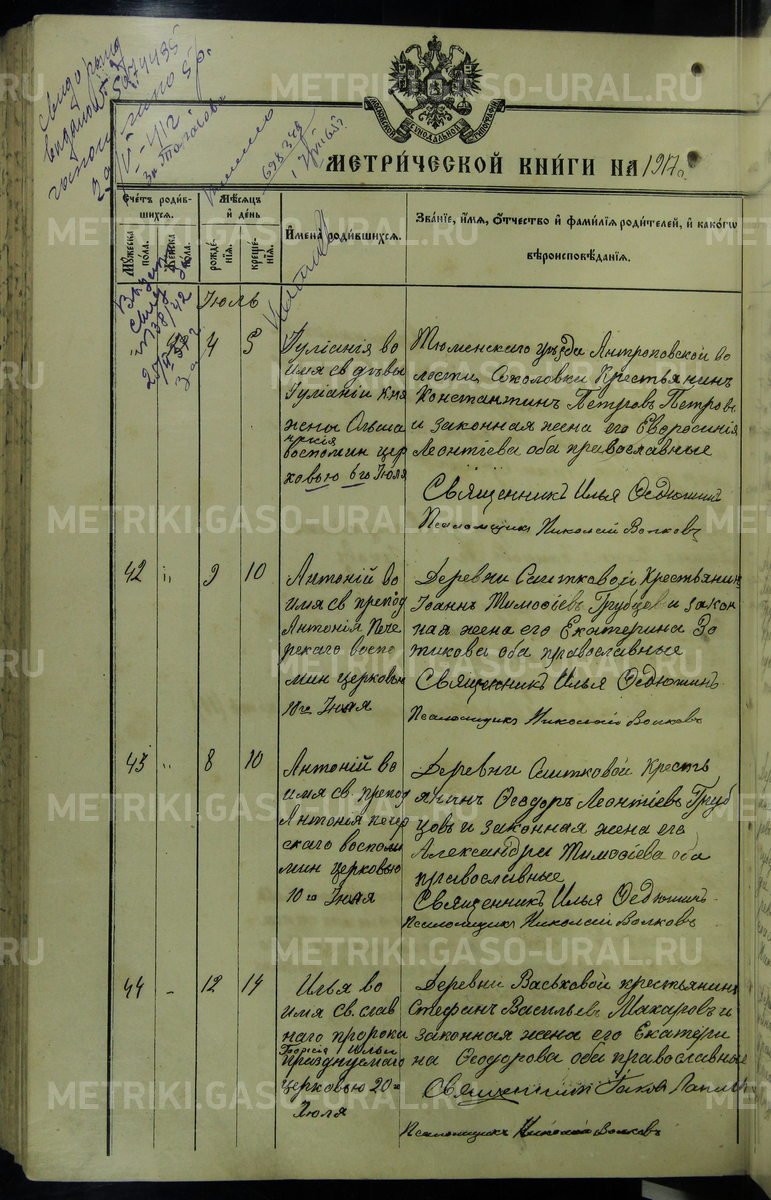 METRIKI.GASO-URAL.RU
МЕТРИ́ЧЕСКОЙ КНИ́ГИ НА 1917 г.
Сче́тъ роди́в-
шихся.
Мѣ́сяцъ
и̂ де́нь
И̂мена̀ роди́вшихся.
Зва́нїе, и̂́мя, о̂́тчество и̂ фами́лїя роди́телей, и̂ како́гѡ
вѣроисповѣ́данїя.
Мꙋ́жеска
по́ла.
Же́нска
по́ла.
рожде́-
нїя.
креще́-
нїя.
Іюль
4 5
Іуліанія во
имя св дѣвы
Іуліаніи кня
жены Ольша
нскія
воспомин цер
ковью 6го Іюля
Тюменскаго уѣзда Антроповской во
лости, Соколовки Крестьянинъ
Константинъ Петровъ Петровъ
и законная жена его Евфросинія
Леонтіева оба православные
Священникъ Илья Ѳедюшинъ
Псаломщикъ Николай Волковъ
42 " 9 10
Антоній во
имя св препод
Антонія Пече
рскаго воспо
мин церковью
10го Іюля
Деревни Ситковой Крестьянин
Іоаннъ Тимоѳіевъ Трубцев и закон
ная жена его Екатерина Зо
тикова оба православные
Священникъ Илья Ѳедюшинъ
Псаломщикъ Николай Волковъ
43 " 8 10
Антоній во
имя св. препод
Антонія печер
скаго воспом
мин церковью
10го Іюля
Деревни Ситковой Кресть
янинъ Ѳеодоръ Леонтіевъ Труб
цовъ и законная жена его
Александра Тимоѳіева оба
православные
Священникъ Илья Ѳедюшинъ
Псаломщикъ Николай Волковъ
44 - 12 14
Илья во
имя св. слав
наго пророка
Божія Ильи
празднуемаго
церковью 20го
Іюля
Деревни Васьковой крестьянинъ
Стефанъ Васильевъ Макаровъ и
законная жена его Екатери
на Ѳеодорова оба православные
Священникъ Іаковъ Лапинъ
Псаломщикъ Николай Волковъ